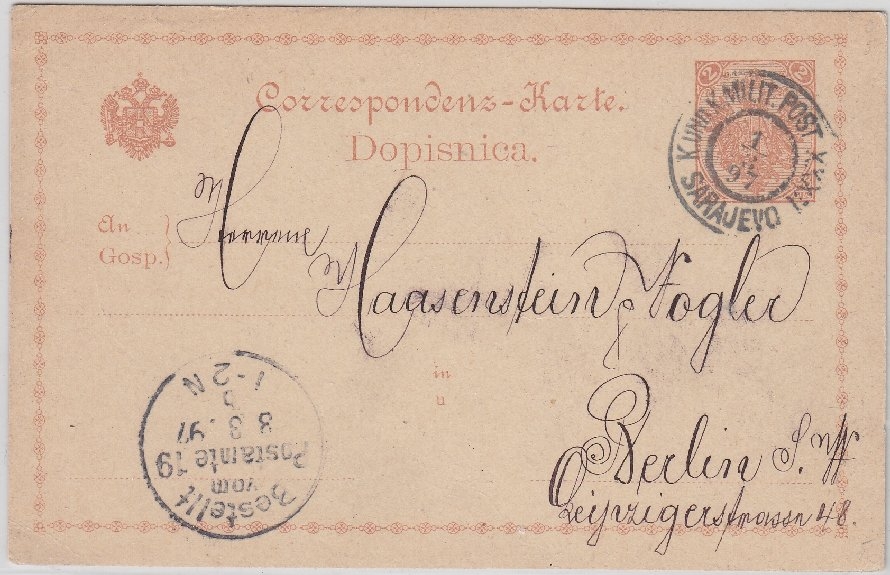 2 2
Correspondenz-Karte.
Dopisnica.
K. UND K. MILIT. POST
SARAJEVO
97
An
Gosp.
Herrene
Haasenstein & Vogler
in
u
Berlin S. W
Leipzigerstrasse 48.
Bestellt
vom
Postamte 19
3 3. 97
1-2 N